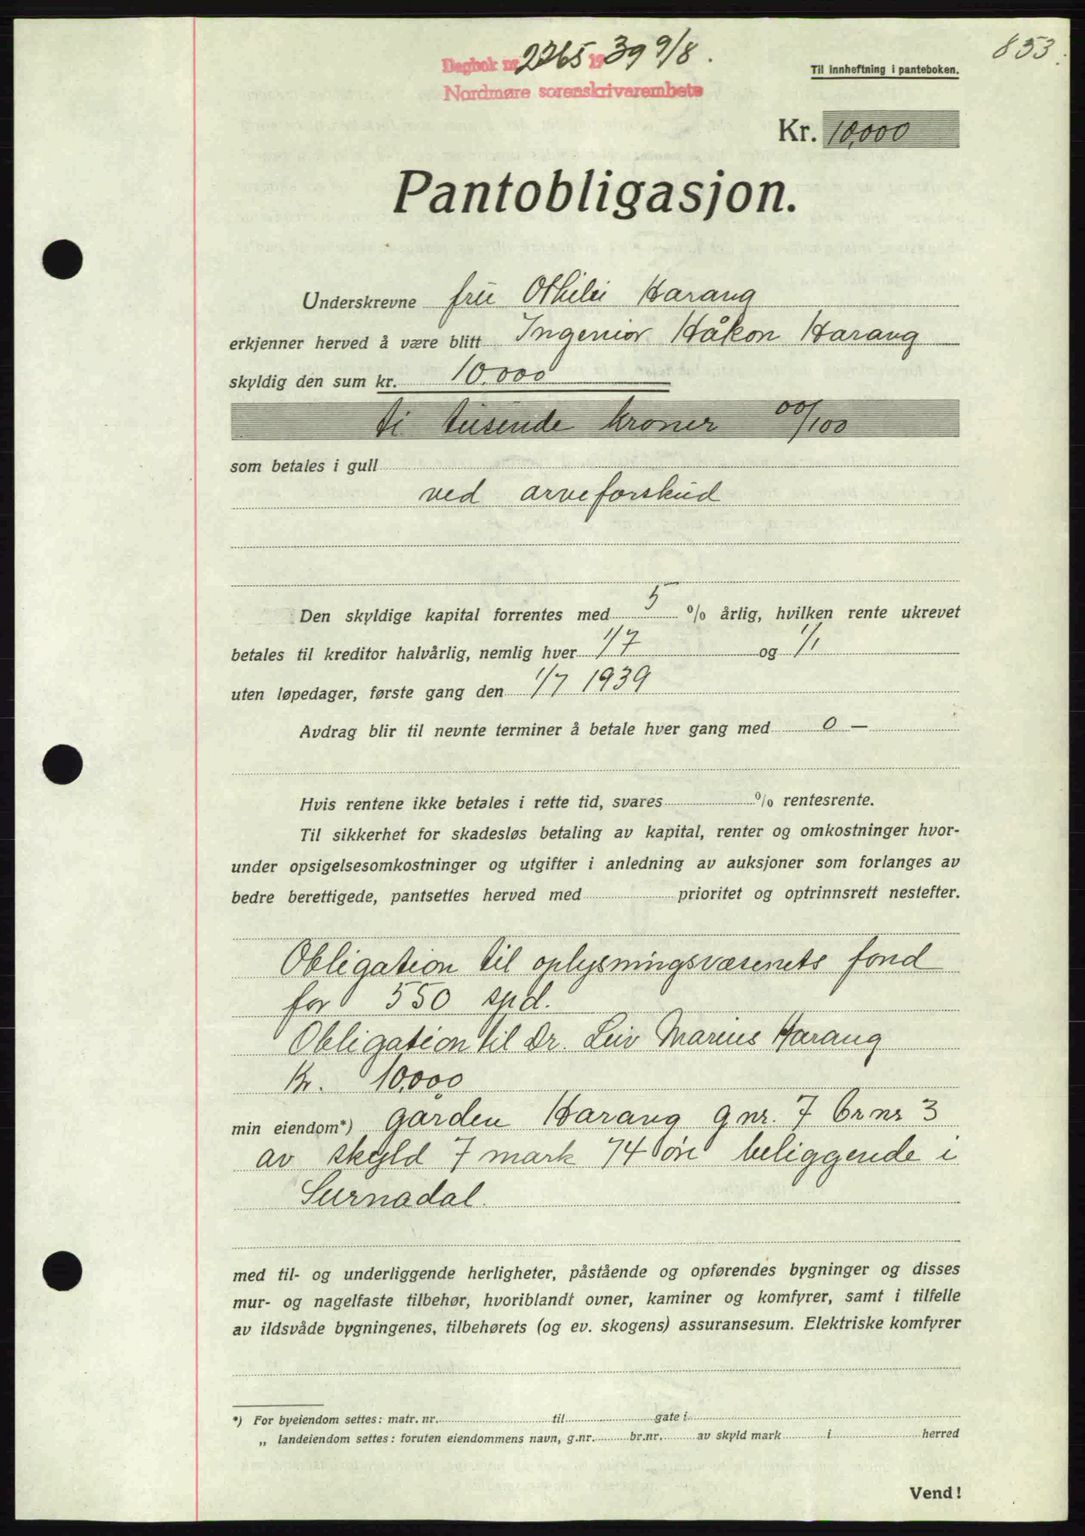 853.
Dagbok nr. 2265 1939 9/8.
Nordmøre sorenskriverembete
Til innheftning i panteboken.
Kr. 10,000
Pantobligasjon.
Underskrevne fru Othilei Harang
erkjenner herved å være blitt Ingeniør Håkon Harang
skyldig den sum kr. 10.000
ti tusende kroner 00/100
som betales i gull
ved arveforskud
Den skyldige kapital forrentes med 5 % årlig, hvilken rente ukrevet
betales til kreditor halvårlig, nemlig hver 1/7 og 1/1
uten løpedager, første gang den 1/7 1939
Avdrag blir til nevnte terminer å betale hver gang med 0 —
Hvis rentene ikke betales i rette tid, svares % rentesrente.
Til sikkerhet for skadesløs betaling av kapital, renter og omkostninger hvor-
under opsigelsesomkostninger og utgifter i anledning av auksjoner som forlanges av
bedre berettigede, pantsettes herved med prioritet og optrinnsrett nestefter.
Obligation til oplysningsvæsenets fond
for 550 spd.
Obligation til Dr. Leiv Marius Harang
Kr. 10,000
min eiendom*) gården Harang gnr. 7 brnr 3
av skyld 7 mark 74 øre beliggende i
Surnadal.
med til- og underliggende herligheter, påstående og opførendes bygninger og disses
mur- og nagelfaste tilbehør, hvoriblandt ovner, kaminer og komfyrer, samt i tilfelle
av ildsvåde bygningenes, tilbehørets (og ev. skogens) assuransesum. Elektriske komfyrer
*) For byeiendom settes: matr. nr. til gate i
„ landeiendom settes: foruten eiendommens navn, g.nr. br.nr. av skyld mark i herred
Vend!